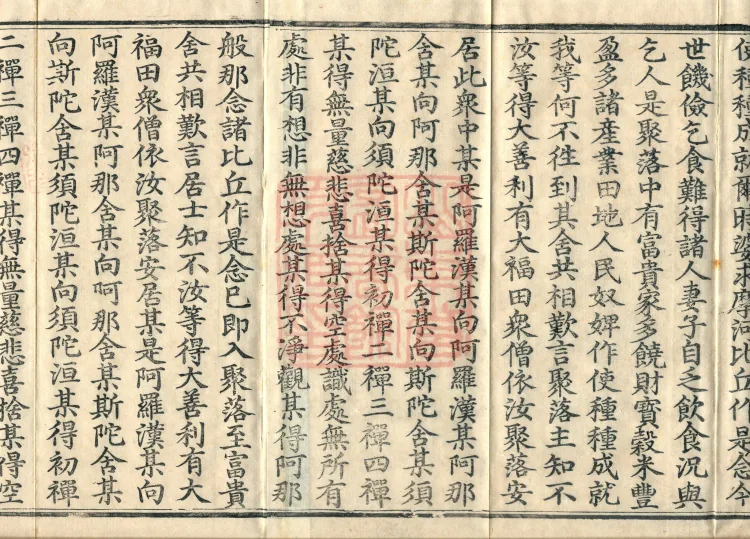 使種種成就爾時婆求摩河比丘作是念今
世饑儉乞食難得諸人妻子自乏飲食況與
乞人是聚落中有富貴家多饒財寶穀米豐
盈多諸產業田地人民奴婢作使種種成就
我等何不往到其舍共相歎言聚落主知不
汝等得大善利有大福田眾僧依汝聚落安
居此眾中某是阿羅漢某向阿羅漢某阿那
舍某向阿那舍某斯陀舍某向斯陀舍某須
陀洹某向須陀洹某得初禪二禪三禪四禪
某得無量慈悲喜捨某得空處識處無所有
處非有想非無想處某得不淨觀某得阿那
般那念諸比丘作是念已即入聚落至富貴
舍共相歎言居士知不汝等得大善利有大
福田眾僧依汝聚落安居某是阿羅漢某向
阿羅漢某阿那舍某向阿那舍某斯陀舍某
向斯陀舍某須陀洹某向須陀洹某得初禪
二禪三禪四禪某得無量慈悲喜捨某得空